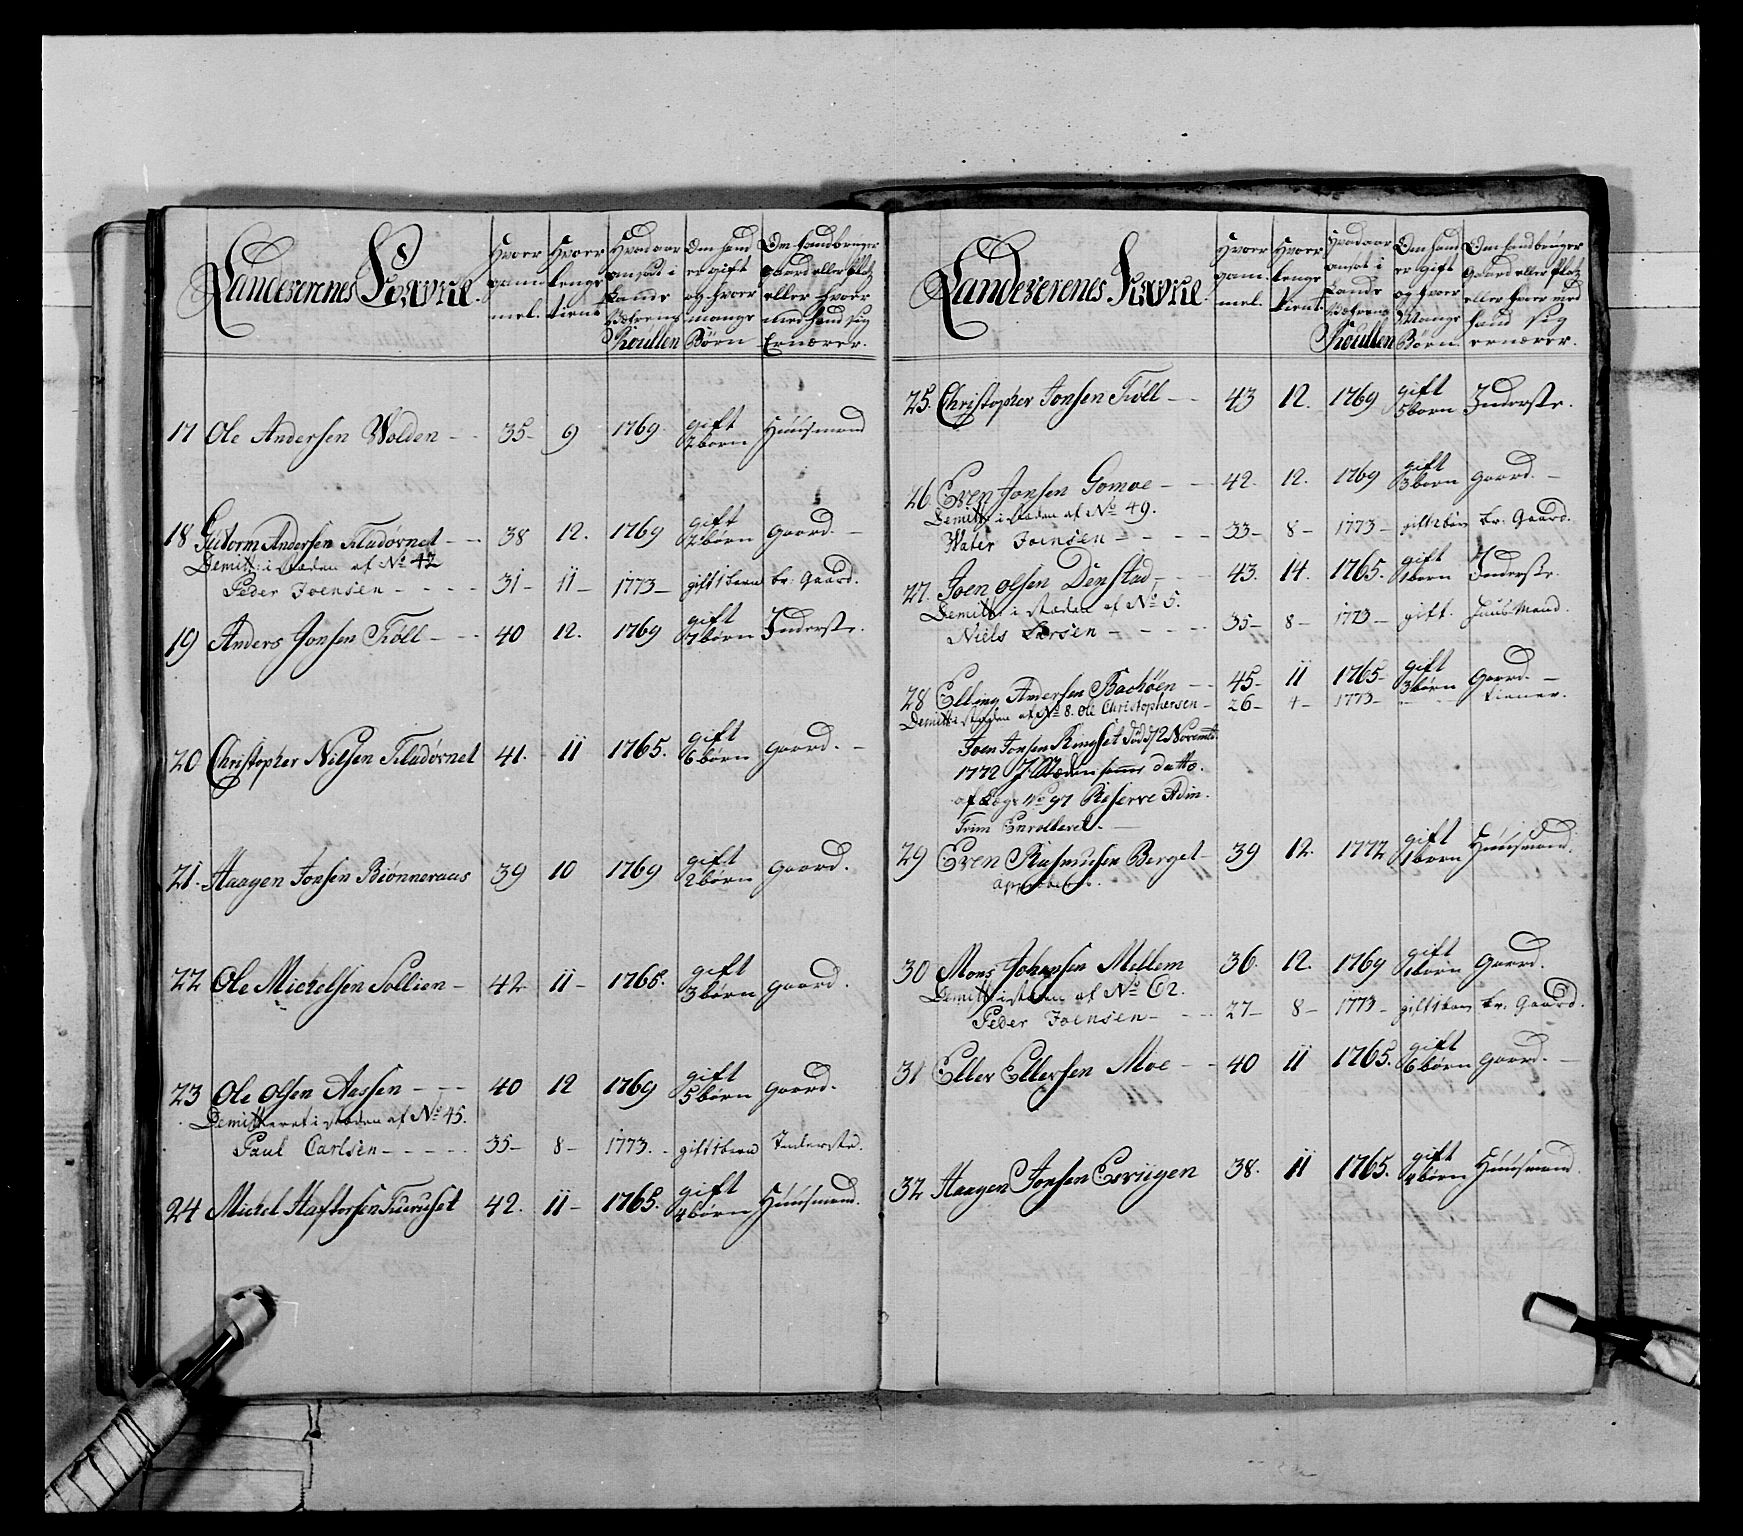 Landeverenes
Hvor gammel.
Hvor lenge tient
Hvad aar ansat i Lande Wærens Roullen
Om hand er gift og hvor mange Børn
Om hand bruger gaard eller Platz eller hvor med hand sig Ernærer.
17 Ole Andersen Wolden - - 35- 9 1769. gift 2 børn Huusmand
18 Guttorm Andersen - - 38 12. 1769 gift 2 børn gaard. -
Demitt: i Stæden af No 42
Peder Joensen - - - - 31- 11- 1773- gift 1 børn br: Gaard.
19 Anders Jonsen - - - 40 12. 1769 gift 7 børn Inderste.
20 Christopher Nilsen 41. 11 1765. gift 6 børn gaard. -
21. Haagen Jonsen Biønneraas 39 10 1769 gift 2 børn gaard.
22 Ole Michelsen Sollien - 42 11- 1765. gift 3 børn gaard.
23 Ole Olsen Aassen - - - 40 12 1769 gift 5 børn gaard.
Demitteret i stæden af No 45.
Paul Carlsen - - - - - 35- 8- 1773. - gift 1 børn Inderste.
24 Michel Haftorsen Furuset 42. 11- 1765. gift 4 børn Huusmand.
Landeverenes
Hvor gammel.
Hvor lenge tient
Hvad aar ansat i Lande Wæhrens Roullen
Om hand er gift og hvor Mange Børn.
Om hand bruger Gaard eller Platz eller hvor med hand sig ernærer.
25. Christopher Jonsen - - 43 12. 1769 gift 5 born Inderste.
26 Even Jonsen Gomoe - - 42. 12. 1769 gift 3 børn gaard. -
Demitt: i Stæden af No 49.
Joensen - - - - 33- 8- 1773- gift 2 børn br. Gaard.
27. Joen Olsen Denstad, - - 43. 14. 1765. gift 1 børn Inderste.
Demitt: i stæden af No 5.
Niels Larsen - - - - 35- 8- 1773- gift. Huusmand.
28 Elling Andersen Bachøen - - 45- 11 1765- gift 3 børn gaard. -
Demitt: i stæden af No 8. Ole Christophersen - 26- 4- 1773- tiener.
Joen Jonsen Ringset død d 12 Novemb:
1772 I Stæden samme datto.
af Læg: No 97 Reserve Adm.
Trim Enrolleret. -
29 Even Rasmusen Berget - 39 12. 1772 gift 1 børn Huusmand.
30 Mons Johansen Mellem 36. 12. 1769 gift børn Gaard.
Demitt: i stæden af No 62.
Peder Joensen - - - 27- 8- 1773- gift 1 børn br. Gaard.
31 Eller Ellersen Moe - - 40 11 1765. gift 6 børn gaard. -
32 Haagen Jonsen 38. 11 1765. gift 4 børn Huusmand.